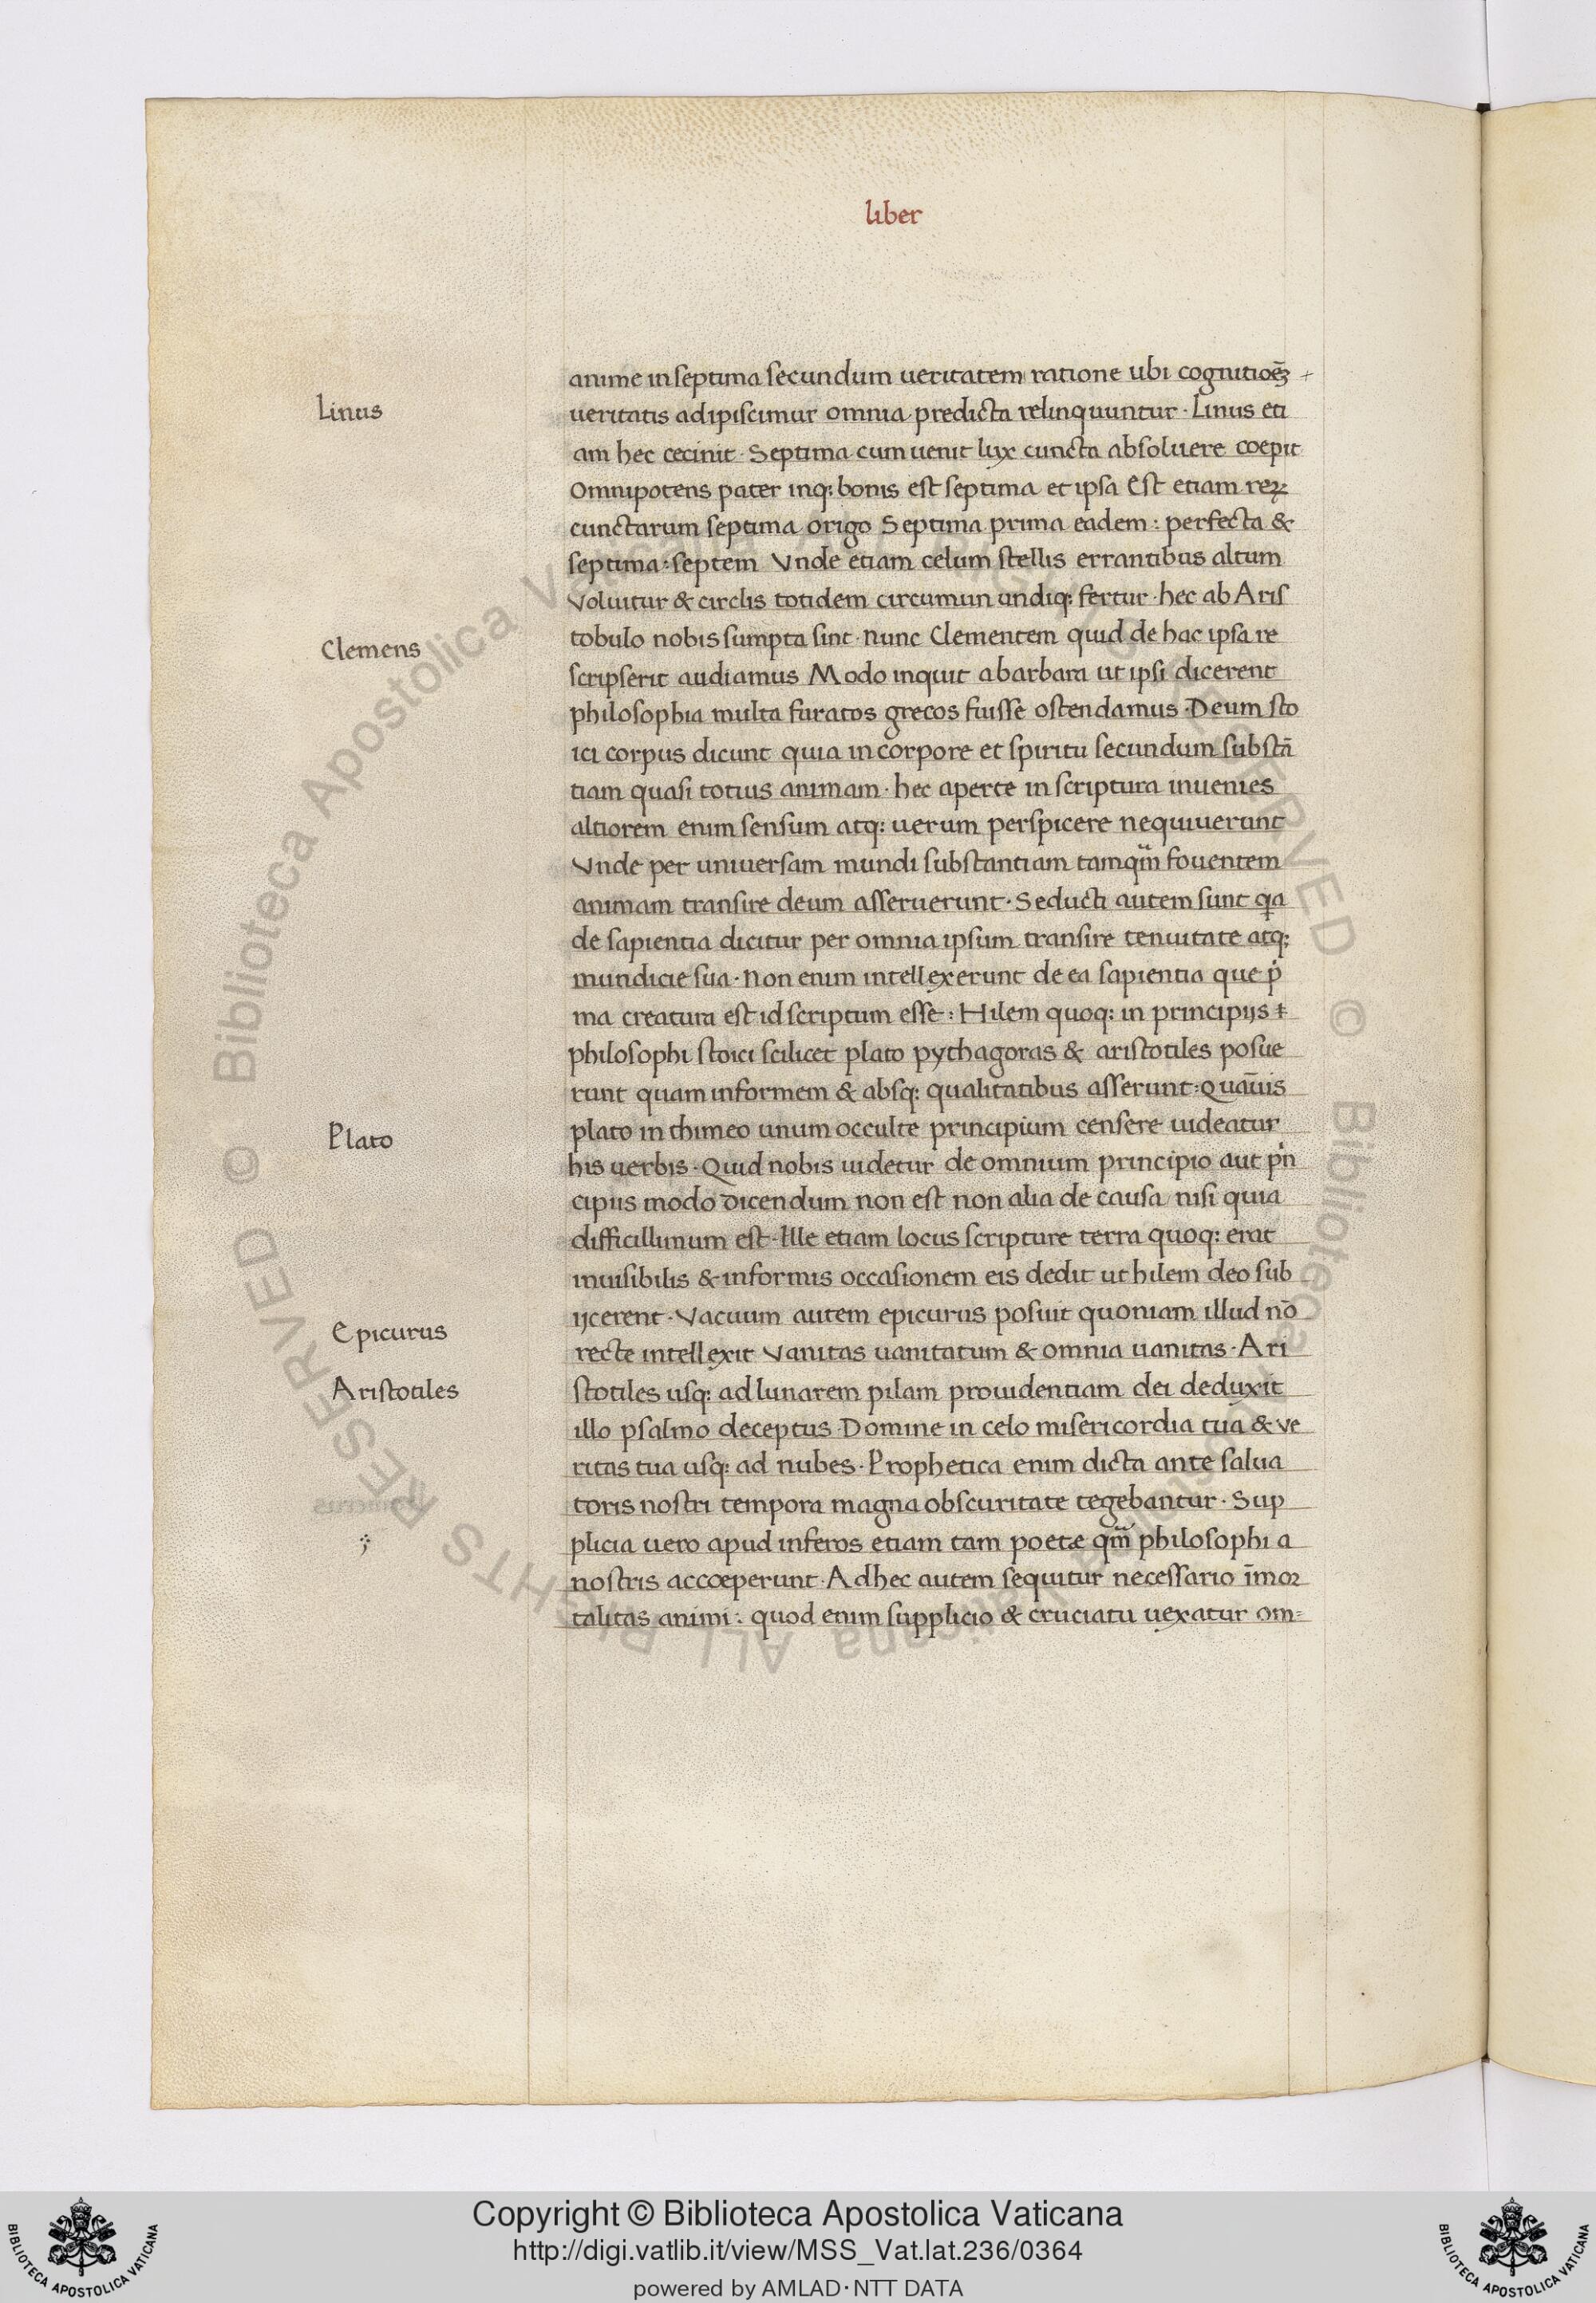 liber
anime in septima secundum ueritatem ratione ubi cognitiōeꝫ
Linus
ueritatis adipiscimur omnia predicta relinquuntur · Linus eti
am hec cecinit · Septima cum uenit lux cuncta absoluere coepit
Omnipotens pater inq; bonis est septima et ipsa Est etiam reꝝ
cunctarum septima origo Septima prima eadem : perfecta &
septima : septem Vnde etiam celum stellis errantibus altum
Voluitur & circlis totidem circumun undiq; fertur · hec ab Aris
tobulo nobis sumpta sint · nunc Clementem quid de hac ipsa re
Clemens
scripserit audiamus Modo inquit a barbara ut ipsi dicerent
philosophia multa furatos grecos fuisse ostendamus · Deum sto
ici corpus dicunt quia in corpore et spiritu secundum substā
tiam quasi totius animam · hec aperte in scriptura inuenies
altiorem enim sensum atq; uerum perspicere nequiuerunt
Vnde per uniuersam mundi substantiam tamqm̄ fouentem
animam transire deum asseruerunt · Seducti autem sunt qa
de sapientia dicitur per omnia ipsum transire tenuitate atq;
mundicie sua · Non enim intellexerunt de ea sapientia que p̍
ma creatura est id scriptum esse : Hilem quoq; in principijs
philosophi stoici scilicet plato pythagoras & aristotiles posue
runt quam informem & absq; qualitatibus asserunt : Quāuis
Plato
plato in thimeo unum occulte principium censere uideatur
his uerbis · Quid nobis uidetur de omnium principio aut p̍n
cipiis modo dicendum non est non alia de causa nisi quia
difficillimum est · Ille etiam locus scripture terra quoq; erat
inuisibilis & informis occasionem eis dedit ut hilem deo sub
ijcerent · Vacuum autem epicurus posuit quoniam illud nō
Epicurus
recte intellexit Vanitas uanitatum & omnia uanitas · Ari
Aristotiles
stotiles usq; ad lunarem pilam prouidentiam dei deduxit
illo psalmo deceptus · Domine in celo misericordia tua & ve
ritas tua usq; ad nubes · Prophetica enim dicta ante salua
toris nostri tempora magna obscuritate tegebantur · Sup
plicia uero apud inferos etiam tam poetæ qm̄ philosophi a
nostris accœperunt · Adhec autem sequitur necessario īmor
talitas animi : quod enim supplicio & cruciatu uexatur om=
© Biblioteca Apostolica Vaticana ALL RIGHTS RESERVED
© Biblioteca Apostolica Vaticana ALL RIGHTS RESERVED
Copyright © Biblioteca Apostolica Vaticana
http://digi.vatlib.it/view/MSS_Vat.lat.236/0364
powered by AMLAD·NTT DATA
BIBLIOTECA APOSTOLICA VATICANA
BIBLIOTECA APOSTOLICA VATICANA